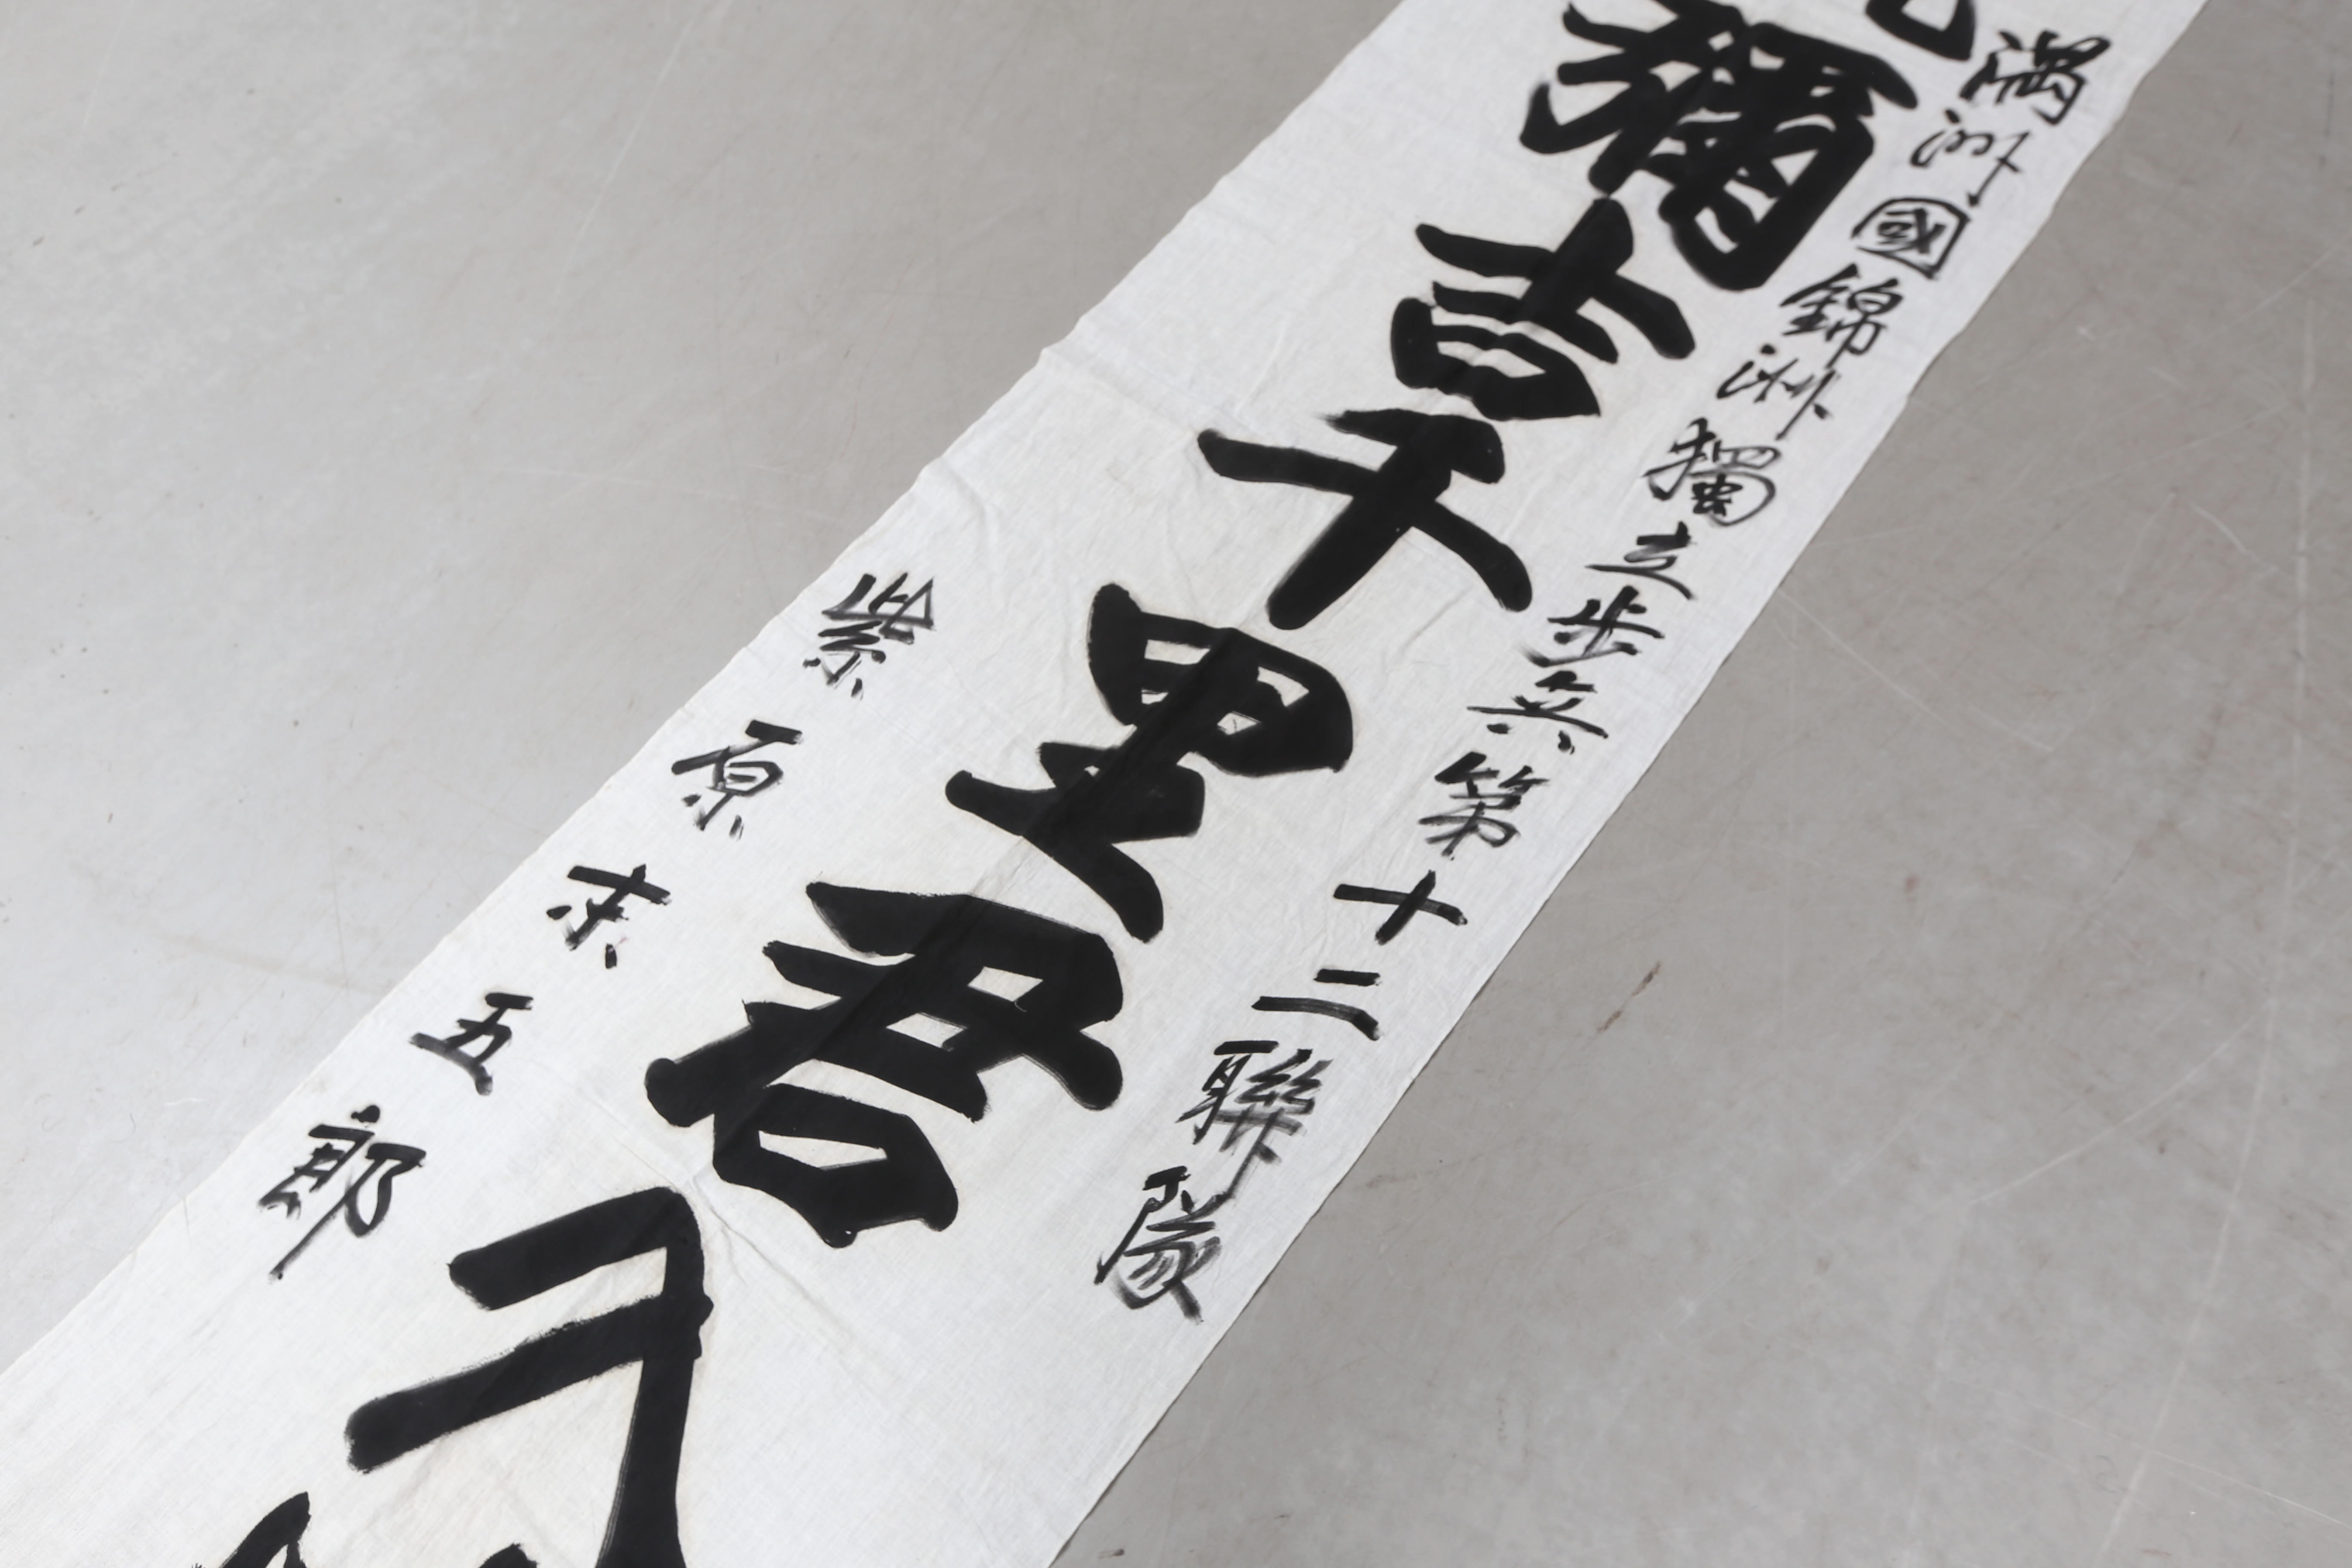 滿洲國錦洲獨立步兵第十二聯隊
彌吉千里君入
紫原末五郎